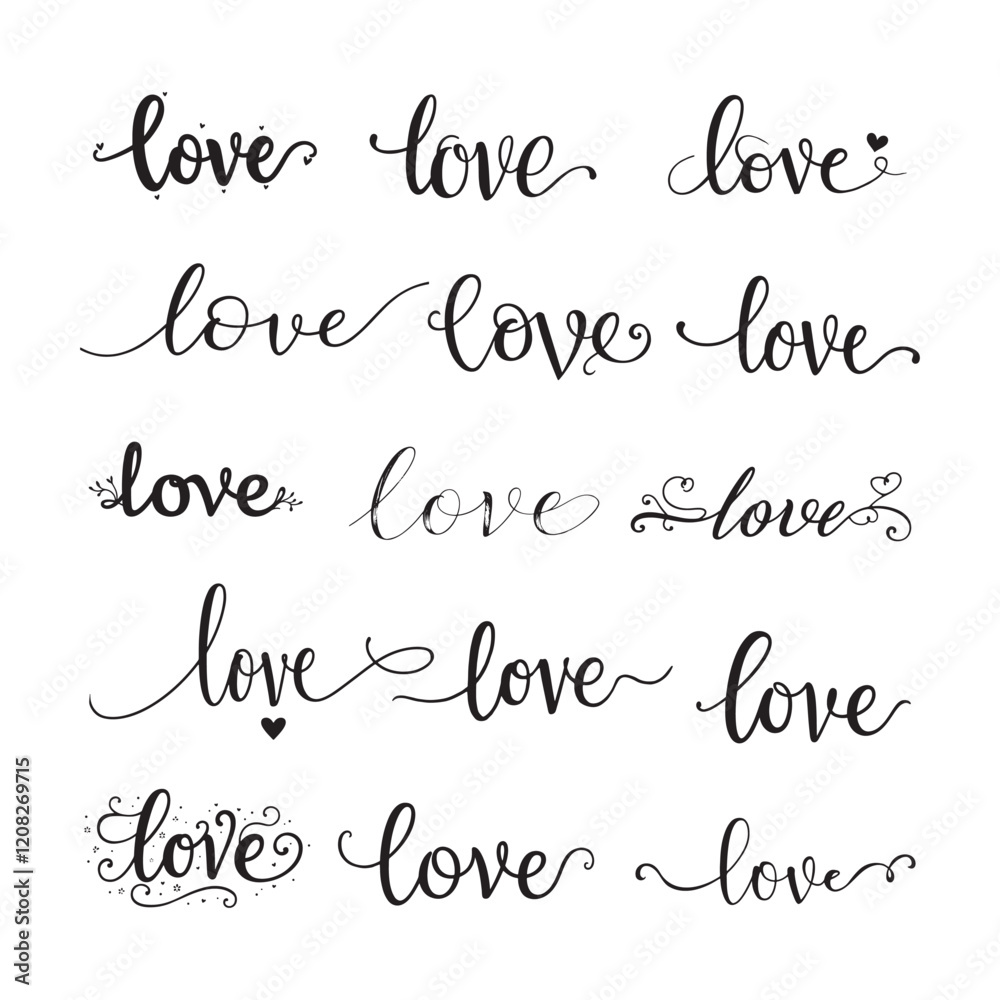 love love love
love love love
love love love
love love love
love love love
Adobe Stock | #1208269715